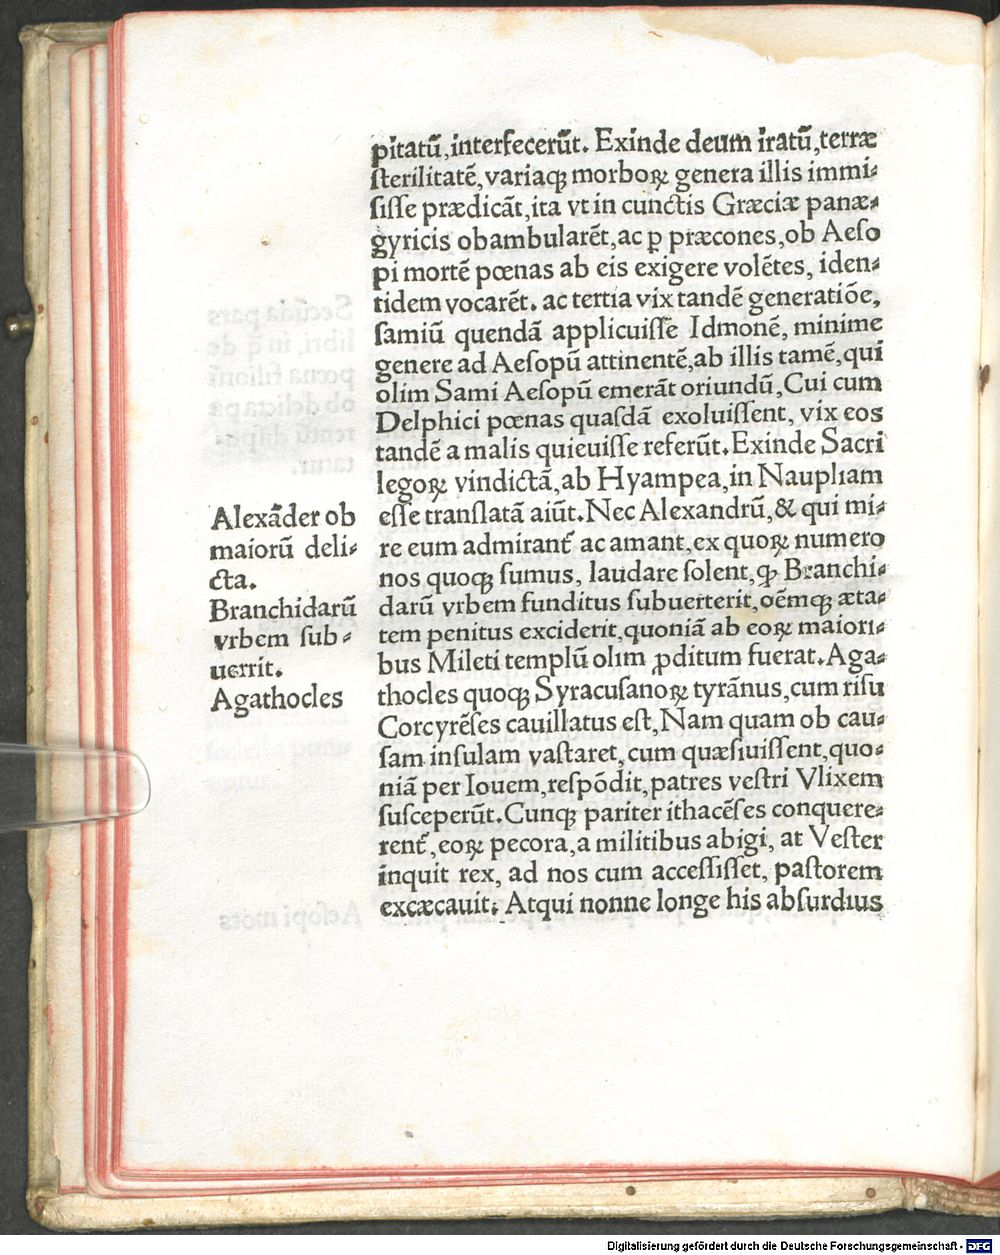 pitatū,interfecerūt. Exinde deum iratū,terræ
ſterilitatē,variaqꝫ morboꝝ genera illis immi⸗
ſiſſe prædicāt,ita vt in cunctis Græciæ panæ⸗
gyricis obambularēt,ac ꝑ præcones,ob Aeſo
pi mortē pœnas ab eis exigere volētes, iden⸗
tidem vocarēt. ac tertia vix tandē generatiōe,
ſamiū quendā applicuiſſe Idmonē, minime
genere ad Aeſopū attinentē,ab illis tamē,qui
olim Sami Aeſopū emerāt oriundū,Cui cum
Delphici pœnas quaſdā exoluiſſent, vix eos
tandē a malis quieuiſſe referūt.Exinde Sacri
legoꝝ vindictā,ab Hyampea,in Naupliam
eſſe tranſlatā aiūt.Nec Alexandrū,& qui mi⸗
re eum admirant᷑ ac amant,ex quoꝝ numero
nos quoqꝫ ſumus, laudare ſolent,ꝙ Branchi⸗
darū vrbem funditus ſubuerterit,oēmqꝫ æta⸗
tem penitus exciderit,quoniā ab eoꝝ maiori⸗
bus Mileti templū olim ꝓditum fuerat.Aga⸗
thocles quoqꝫ Syracuſanoꝝ tyrānus,cum riſu
Corcyrēſes cauillatus eſt,Nam quam ob cau⸗
ſam inſulam vaſtaret,cum quæſiuiſſent,quo⸗
niā per Iouem,reſpōdit,patres veſtri Vlixem
ſuſceperūt.Cunqꝫ pariter ithacēſes conquere⸗
rent᷑,eoꝝ pecora,a militibus abigi, at Veſter
inquit rex, ad nos cum acceſſiſſet, paſtorem
excæcauit. Atqui nonne longe his abſurdius
Alexāder ob
maiorū deli⸗
cta.
Branchidarū
vrbem ſub⸗
uerrit.
Agathocles
Digitalisierung gefördert durch die Deutsche Forschungsgemeinschaft - DFG